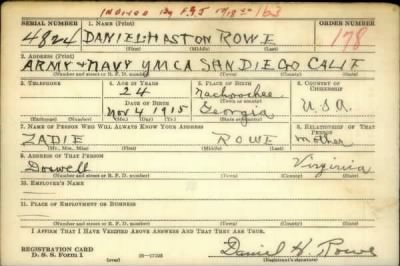 SERIAL NUMBER 1. NAME (Print) ORDER NUMBER
163
4824 DANIEL HASTON ROWE 178
(First) (Middle) (Last)
2. ADDRESS (Print)
ARMY & NAVY YMCA SAN DIEGO CALIF
(Number and street or R. F. D. number) (Town) (County) (State)
3. TELEPHONE 4. AGE IN YEARS 5. PLACE OF BIRTH 6. COUNTRY OF CITIZENSHIP
24 Nachoochee
(Town or county)
DATE OF BIRTH
Nov 4 1915 Georgia U.S.A.
(Exchange) (Number) (Mo.) (Day) (Yr.) (State or country)
7. NAME OF PERSON WHO WILL ALWAYS KNOW YOUR ADDRESS 8. RELATIONSHIP OF THAT PERSON
ZADIE ROWE mother
(Mr., Mrs., Miss) (First) (Middle) (Last)
9. ADDRESS OF THAT PERSON
Doswell Virginia
(Number and street or R. F. D. number) (Town) (County) (State)
10. EMPLOYER'S NAME
11. PLACE OF EMPLOYMENT OR BUSINESS
(Number and street or R. F. D. number) (Town) (County) (State)
I AFFIRM THAT I HAVE VERIFIED ABOVE ANSWERS AND THAT THEY ARE TRUE.
REGISTRATION CARD
D. S. S. Form 1 Daniel H. Rowe
(Registrant's signature)